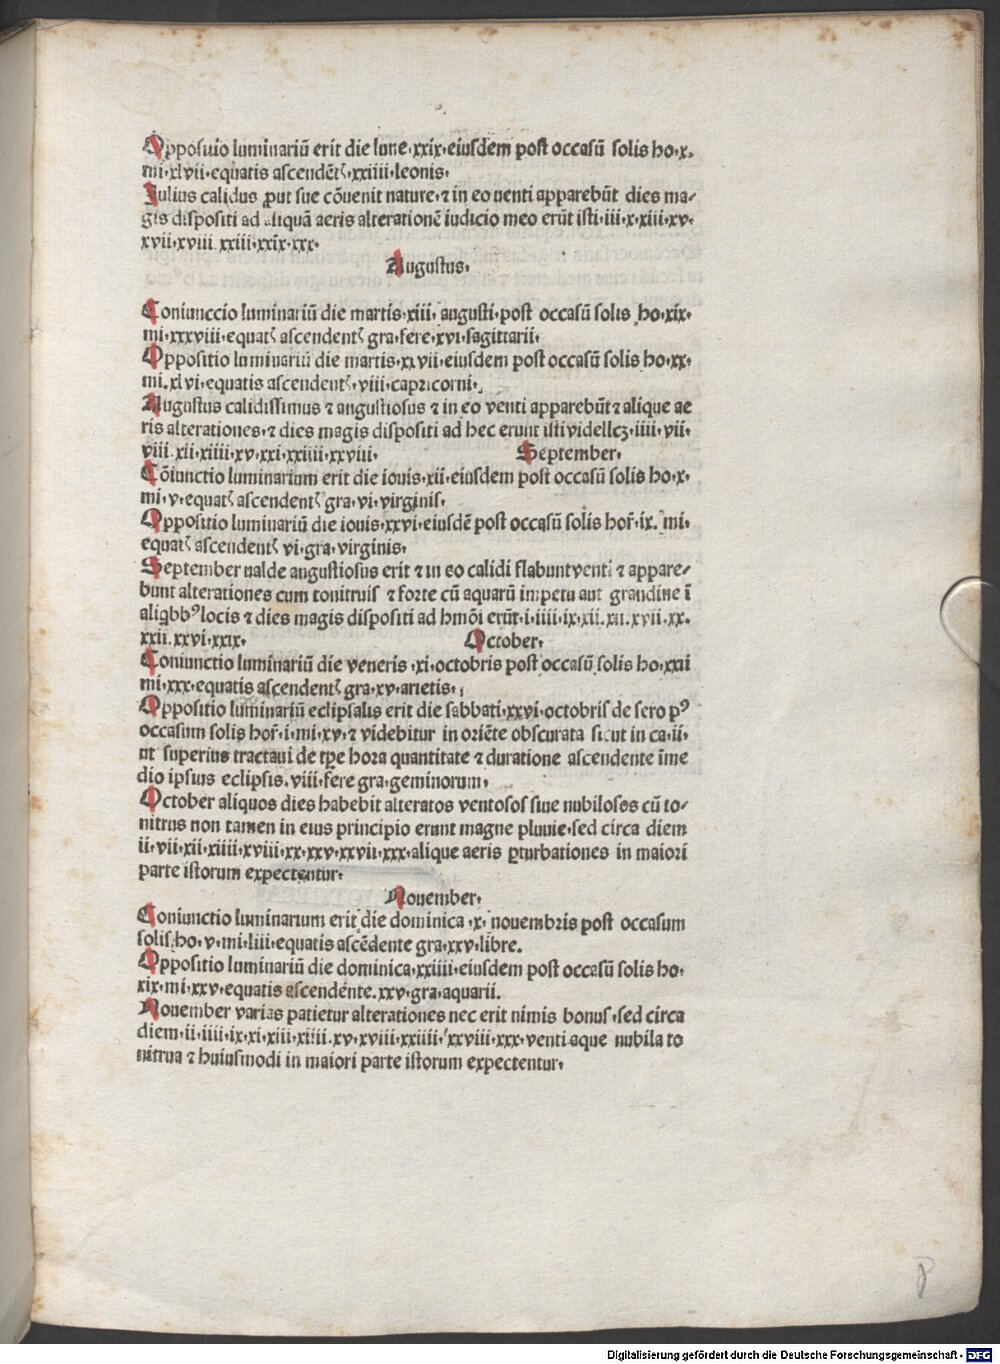 Oppositio luminariū erit die lune·xxix·eiusdem post occasū solis ho·x·
mi·xlvii·equatis ascendēt᷎·xxiiii·leonis·
Julius calidus ꝓut sue cōuenit nature·⁊ in eo uenti apparebūt dies ma⸗
gis dispositi ad aliquā aeris alterationē iudicio meo erūt isti·iii·x·xiii·xv·
xvii·xviii·xxiii·xxix·xxx·
Augustus·
Coniunccio luminariū die martis·xiii·augusti·post occasū solis ho·xix·
mi·xxxviii·equat᷎ ascendent᷎ gra·fere·xvi·sagittarii·
Oppositio luminariū die martis·xxvii·eiusdem post occasū solis ho·xx·
mi·xlvi·equatis ascendent᷎·viii·capricorni·
Augustus calidissimus ⁊ angustiosus ⁊ in eo venti apparebūt ⁊ alique ae
ris alterationes·⁊ dies magis dispositi ad hec erunt isti videllcꝫ·iiii·vii·
viii·xii·xiiii·xv·xxi·xxiiii·xxviii· September·
Cōiunctio luminarium erit die iouis·xii·eiusdem post occasū solis ho·x·
mi·v·equat᷎ ascendent᷎ gra·vi·virginis·
Oppositio luminariū die iouis·xxvi·eiusdē post occasū solis hoɼ·ix·mi·
equat᷎ ascendent᷎ vi·gra·virginis·
September ualde angustiosus erit ⁊ in eo calidi flabunt venti ⁊ appare⸗
bunt alterationes cum tonitruis ⁊ forte cū aquarū impetu aut grandine ī
aliqbbꝰ locis ⁊ dies magis dispositi ad hmōi erūt·i·iiii·ix·xii· xvii·xx·
xxii·xxvi·xxx· October·
Coniunctio luminariū die veneris·xi·octobris post occasū solis ho·xxi
mi·xxx·equatis ascendent᷎ gra·xv·arietis·
Oppositio luminariū eclipsalis erit die sabbati·xxvi·octobris de sero pꝰ
occasum solis hoɼ·i·mi·xv·⁊ videbitur in oriēte obscurata sicut in ca·ii·
ut superius tractaui de tꝑe hora quantitate ⁊ duratione ascendente īme
dio ipsius eclipsis·viii·fere gra·geminorum·
October aliquos dies habebit alteratos ventosos siue nubiloses cū to⸗
nitrus non tamen in eius principio erunt magne pluuie·sed circa diem
ii·vii·xii·xiiii·xviii·xx·xxv·xxvii·xxx·alique aeris ꝑturbationes in maiori
parte istorum expectentur·
Nouember·
Coniunctio luminarium erit die dominica·x·nouembris post occasum
solis·ho·v·mi·liii·equatis ascēdente gra·xxv·libre.
Oppositio luminariū die dominica·xxiiii·eiusdem post occasū solis ho·
xix·mi·xxv·equatis ascendente·xxv·gra·aquarii.
Nouember varias patietur alterationes nec erit nimis bonus·sed circa
diem·ii·iiii·ix·xi·xiii·xiiii·xv·xviii·xxiiii·xxviii·xxx·venti aque nubila to
nitrua ⁊ huiusmodi in maiori parte istorum expectentur·
Digitalisierung gefördert durch die Deutsche Forschungsgemeinschaft - DFG